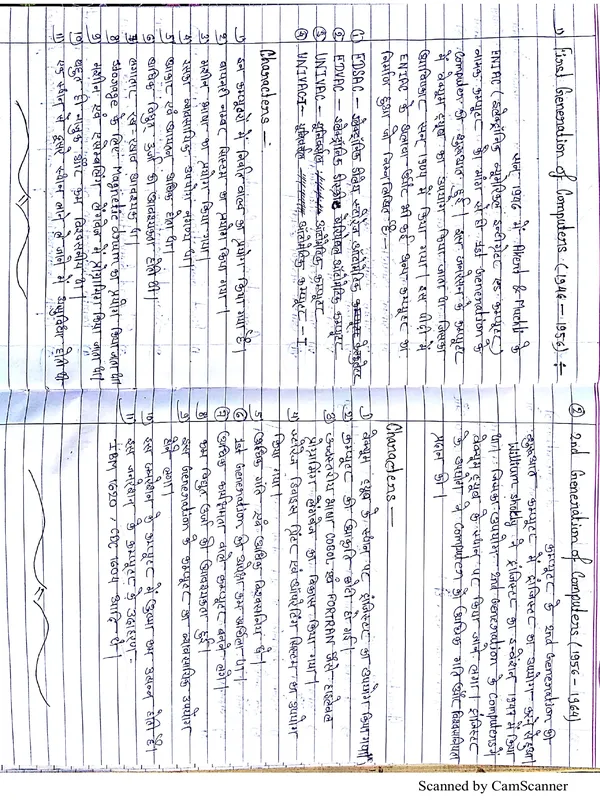 1) First Generation of Computers (1946 - 1956) ÷
सन् 1946 में Akend & Muchly के
ENIAC ( इलेक्ट्रॉनिक न्यूमेरिक इन्टीग्रेटर एंड कम्प्यूटर)
नामक कम्प्यूटर के निर्माण से ही 1st Generation के
Computer की शुरुआत हुई। इस जनरेशन के कम्प्यूटर
में वैक्यूम ट्यूब का उपयोग किया जाता था जिसका
आविष्कार सन् 1904 में किया गया। इस पीढ़ी में
ENIAC के अलावा और भी कई अन्य कम्प्यूटर का
निर्माण हुआ जो निम्नलिखित है-
① EDSAC - इलेक्ट्रॉनिक डीलेय स्टोरेज ऑटोमैटिक
② EDVAC - इलेक्ट्रॉनिक वेरियेबल ऑटोमैटिक कम्प्यूटर
③ UNIVAC - यूनिवर्सल ऑटोमैटिक कम्प्यूटर
④ UNIVAC1 - यूनिवर्सल ऑटोमैटिक कम्प्यूटर - I
Characters -:
1) इन कम्प्यूटरों में निर्वात वाल्व का प्रयोग किया गया है।
2) बायनरी नम्बर सिस्टम का प्रयोग किया गया।
3) मशीन भाषा का प्रयोग किया गया।
4) इसका व्यवसायिक उपयोग नगण्य था।
5) आकार एवं आयतन अधिक होता था।
6) अधिक विद्युत उर्जा की आवश्यकता होती थी।
7) लगातार रख-रखाव आवश्यक था।
8) Storage के लिए Magnetic drum का प्रयोग किया जाता था
9) मशीन एवं एसेम्बलिंग लैंग्वेज में प्रोग्रामिंग किया जाता था।
10) बहुत ही नाजुक और कम विश्वसनीय था।
11) एक स्थान से दूसरे स्थान लाने ले जाने में असुविधा होती थी
② 2nd Generation of Computers (1956 - 1964)
कम्प्यूटर के 2nd Generation की
शुरुआत कम्प्यूटर में ट्रांजिस्टर का उपयोग करने से हुआ
William Shokly ने ट्रांजिस्टर का इन्वेंशन 1947 में किया
था। जिसका उपयोग 2nd Generation के Computers में
वैक्यूम ट्यूब के स्थान पर किया जाने लगा। ट्रांजिस्टर
के उपयोग ने Computers को अधिक गति और विश्वसनियता
प्रदान की।
Characters —
1) वैक्यूम ट्यूब के स्थान पर ट्रांजिस्टर का उपयोग किया गया।
2) कम्प्यूटर की आकृति छोटी हो गई।
3) उच्चस्तरीय भाषा COBOL एवं FORTRAN जैसे हाइलेवल
प्रोग्रामिंग लैंग्वेज का विकास किया गया।
4) स्टोरेज डिवाइस प्रिंटर एवं ऑपरेटिंग सिस्टम का उपयोग
किया गया।
5) अधिक गति एवं अधिक विश्वसनिय थे।
⑥ 1st Generation की अपेक्षा कम खर्चीला था।
⑦ अधिक कार्यक्षमता वाले कम्प्यूटर बनने लगे।
8) कम विद्युत उर्जा की आवश्यकता हुई।
9) इस Generation के कम्प्यूटर का व्यावसायिक उपयोग
होने लगा।
10) इस जनरेशन के कम्प्यूटर में उष्मा कम उत्पन्न होती है।
11) इस जनरेशन के कम्प्यूटर के उदाहरण-
IBM 1620, CDC 1604 आदि थे।
Scanned by CamScanner